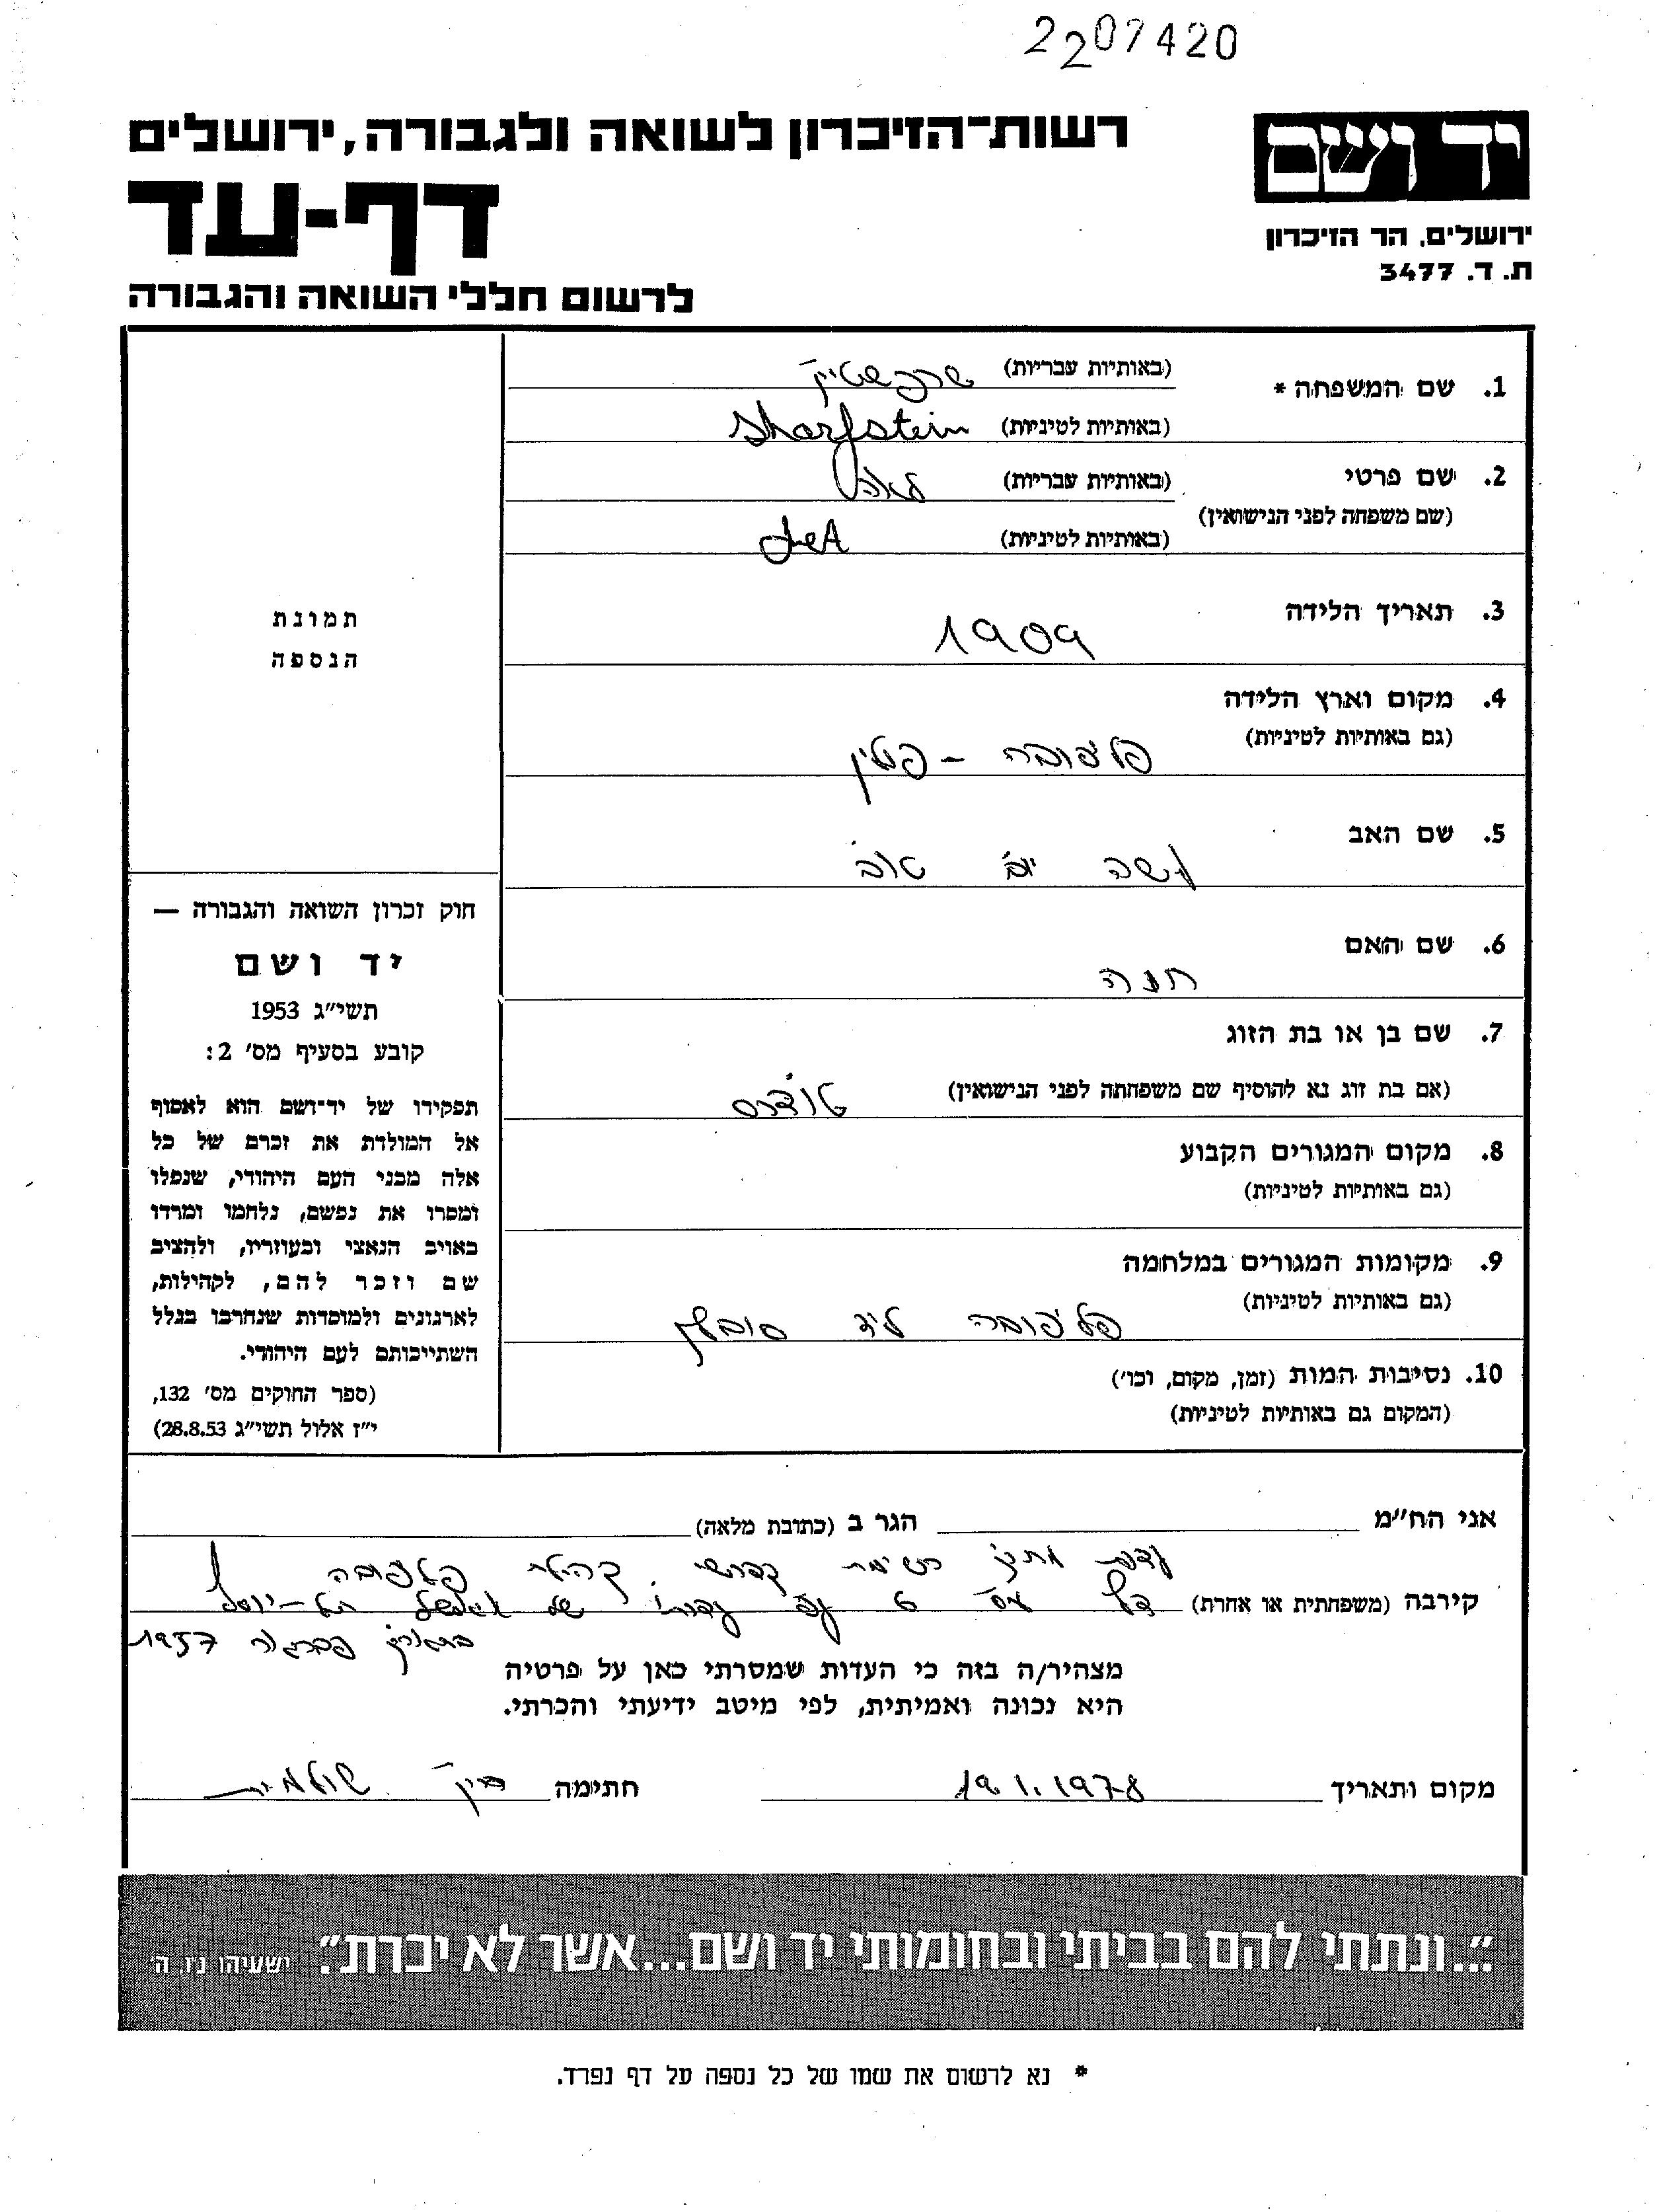 2207420
רשות־הזיכרון לשואה ולגבורה, ירושלים
יד ושם
דף-עד
ירושלים, הר הזיכרון
ת. ד. 3477
לרשום חללי השואה והגבורה
1. שם המשפחה * (באותיות עבריות) שרפשטין
(באותיות לטיניות) Sharfstein
2. שם פרטי (באותיות עבריות) לאה
(שם משפחה לפני הנישואין)
(באותיות לטיניות) LeA
3. תאריך הלידה 1909
4. מקום וארץ הלידה
(גם באותיות לטיניות) פילפובה - פולין
5. שם האב משה יום טוב
6. שם האם חנה
7. שם בן או בת הזוג
(אם בת זוג נא להוסיף שם משפחתה לפני הנישואין) טודרס
8. מקום המגורים הקבוע
(גם באותיות לטיניות)
9. מקומות המגורים במלחמה
(גם באותיות לטיניות) ליד סובלק
10. נסיבות המות (זמן, מקום, וכו׳)
(המקום גם באותיות לטיניות)
תמונת
הנספה
חוק זכרון השואה והגבורה —
יד ושם
תשי״ג 1953
קובע בסעיף מס׳ 2:
תפקידו של יד־ושם הוא לאסוף
אל המולדת את זכרם של כל
אלה מבני העם היהודי, שנפלו
ומסרו את נפשם, נלחמו ומרדו
באויב הנאצי ובעוזריו, ולהציב
שם וזכר להם, לקהילות,
לארגונים ולמוסדות שנחרבו בגלל
השתייכותם לעם היהודי.
(ספר החוקים מס׳ 132,
י״ז אלול תשי״ג 28.8.53)
אני הח״מ הגר ב (כתובת מלאה)
מתוך רשימת קדושי קהילת
קירבה (משפחתית או אחרת) דף מס' עפ עדותו של תל-יוסף
בתאריך פברואר 1957
מצהיר/ה בזה כי העדות שמסרתי כאן על פרטיה
היא נכונה ואמיתית, לפי מיטב ידיעתי והכרתי.
מקום ותאריך 19.1.1978 חתימה שולמית
״...ונתתי להם בביתי ובחומותי יד ושם...אשר לא יכרת״. ישעיהו נ״ו, ה׳
* נא לרשום את שמו של כל נספה על דף נפרד.